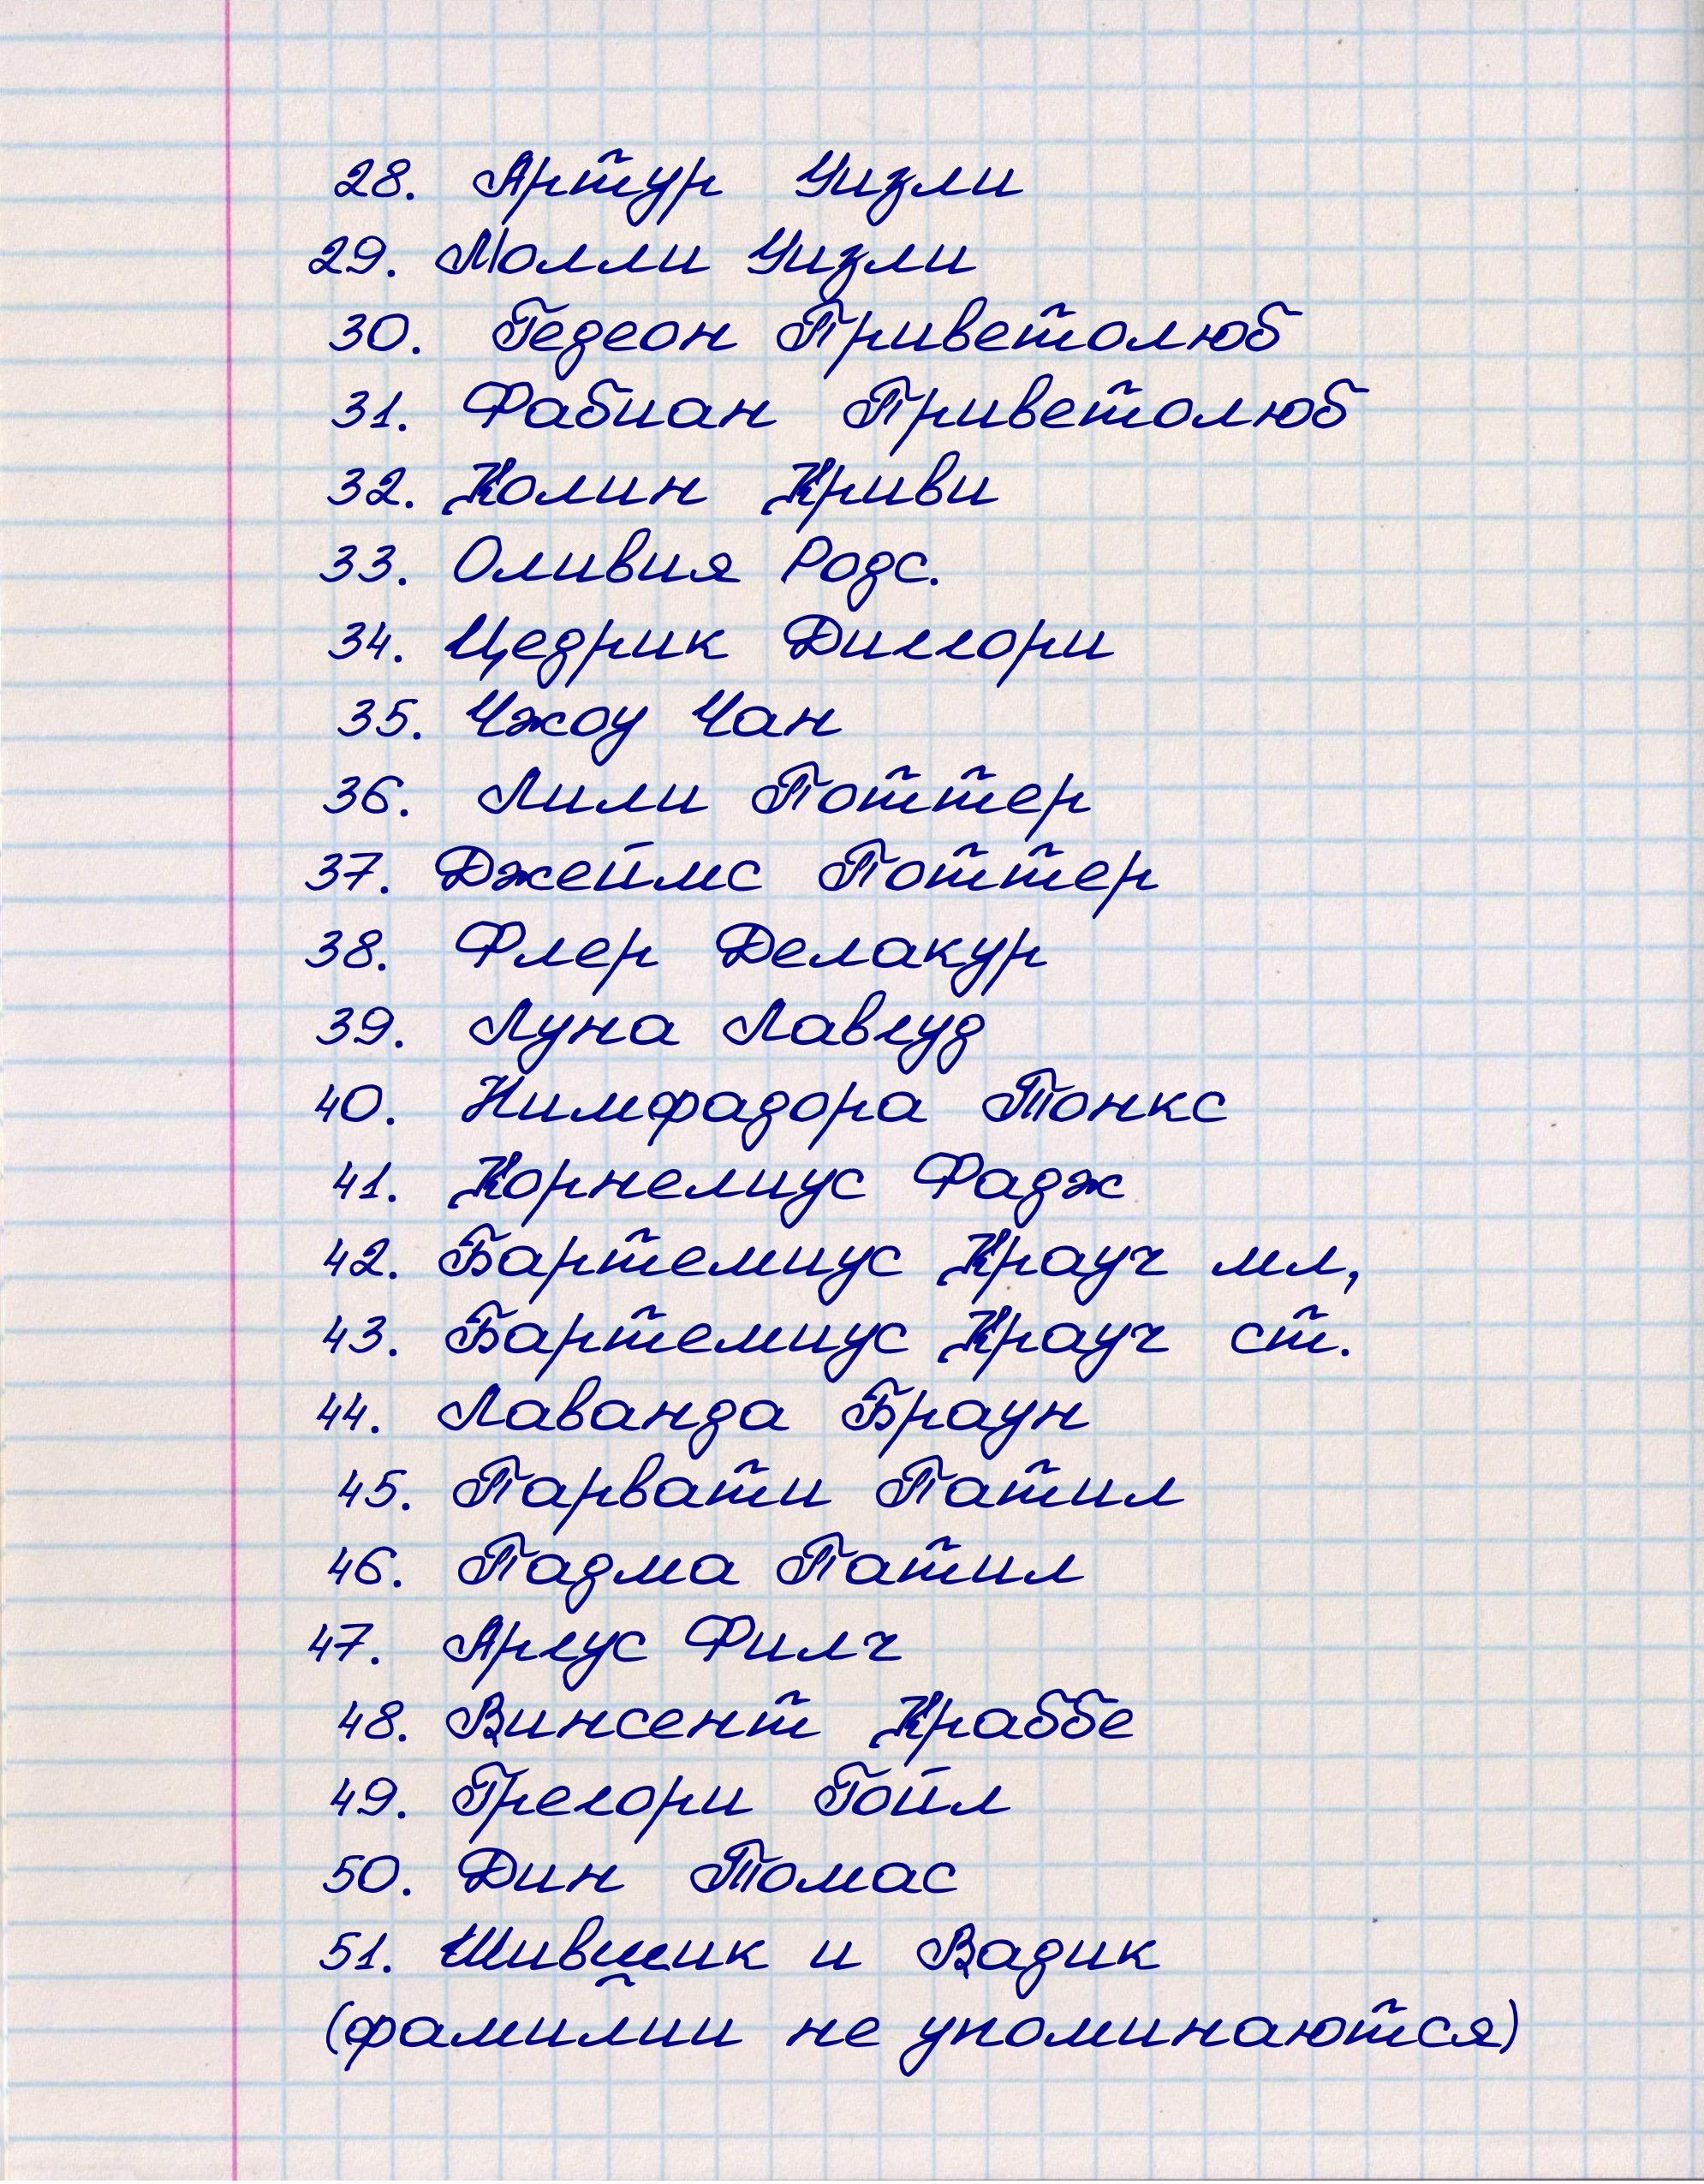 28. Артур Уизли
29. Молли Уизли
30. Гедеон Приветолюб
31. Фабиан Приветолюб
32. Колин Криви
33. Оливия Родс.
34. Цедрик Диггори
35. Чжоу Чан
36. Лили Поттер
37. Джеймс Поттер
38. Флер Делакур
39. Луна Лавгуд
40. Нимфадора Тонкс
41. Корнелиус Фадж
42. Бартемиус Крауч мл,
43. Бартемиус Крауч ст.
44. Лаванда Браун
45. Парвати Патил
46. Падма Патил
47. Аргус Филч
48. Винсент Краббе
49. Грегори Гойл
50. Дин Томас
51. Шивщик и Вадик
(фамилии не упоминаются)